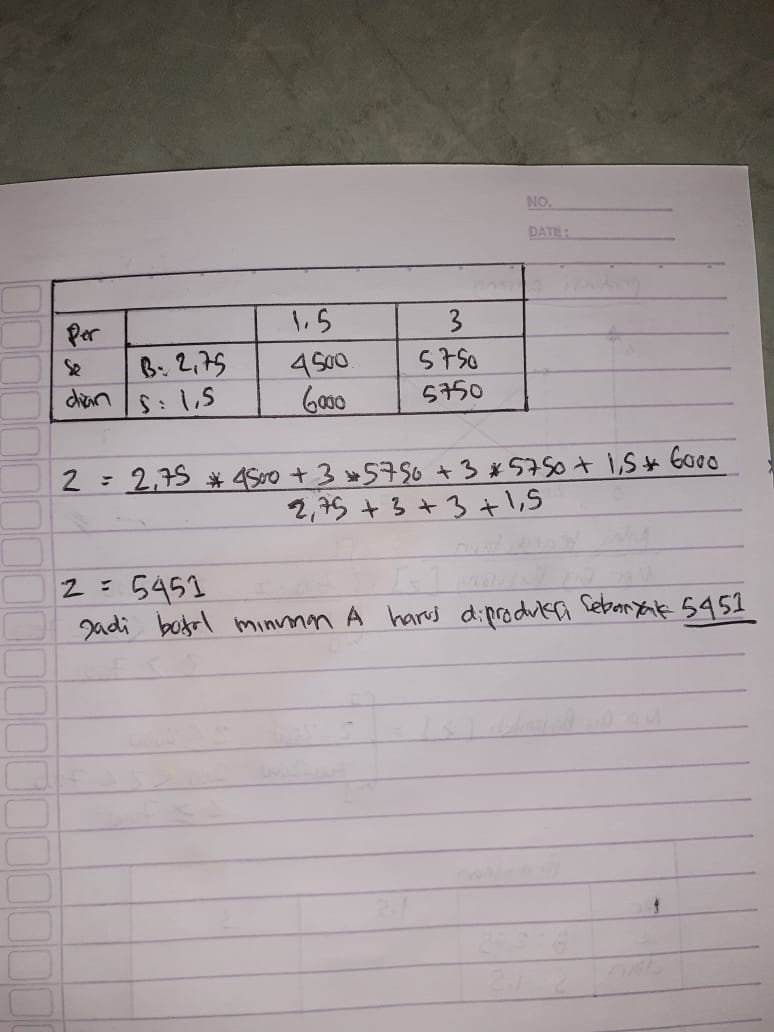 NO.
DATE:
1.5 3
Per
Se B: 2,75 4500 5750
dian S: 1,5 6000 5750
Z = 2,75 * 4500 + 3 * 5750 + 3 * 5750 + 1,5 * 6000
2,75 + 3 + 3 + 1,5
Z = 5451
Jadi botol minuman A harus diproduksi Sebanyak 5451